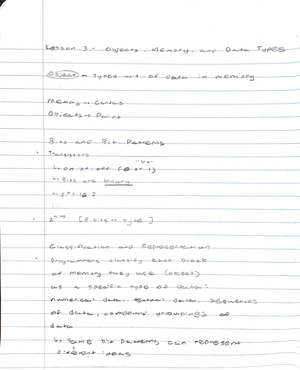 Lesson 3 - Objects, Memory, and Data Types
Object = Typed unit of data in memory
Memory → Canvas
Objects → Paint
Bits and Bit Patterns
Transistors
↳ on or off (0 or 1)
↳ Bits are binary
[8 bits = byte]
Classification and Representation
Programmers classify each block
of memory they use (object)
as a specific type of data:
numerical data, textual data, sequences
of data, compound groupings of
data
↳ Same bit patterns can represent
different ideas